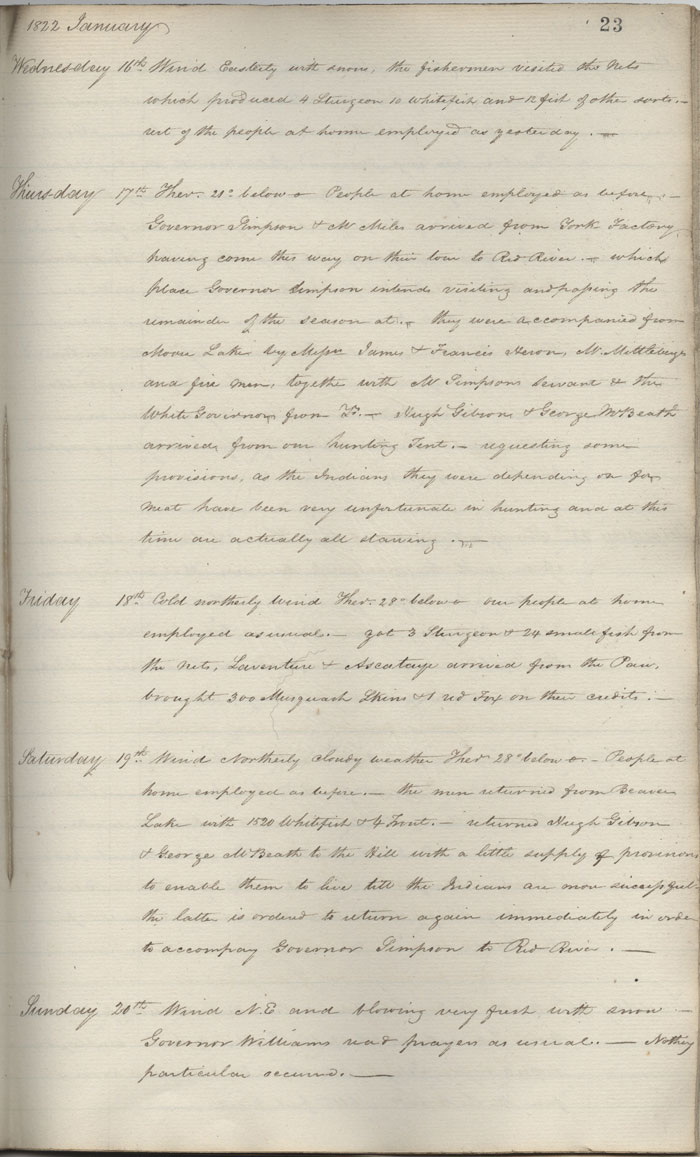 1822 January
23
Wednesday 16th Wind Easterly with snow, the fishermen visited the Nets
which produced 4 Sturgeon 10 whitefish and 12 fish of other sorts. —
rest of the people at home employed as yesterday. —
Thursday 17th Ther. 21° below o People at home employed as before. —
Governor Simpson & Mr Miles arrived from York Factory
having come this way on their tour to Red River. — which
place Governor Simpson intends visiting and passing the
remainder of the season at. — they were accompanied from
Moose Lake by Messrs James & Francis Heron, Mr Mittleberger
and five men, together with Mr Simpsons servant & the
White Governors from Do. — Hugh Gibson & George McBeath
arrived from our hunting Tent. — requesting some
provisions, as the Indians they were depending on for
meat have been very unfortunate in hunting and at this
time are actually all starving. —
Friday 18th Cold northerly wind Ther. 28° below o our people at home
employed as usual. — got 3 Sturgeon & 24 small fish from
the nets, Laventure & arrived from the Paw,
brought 300 Musquash Skins & 1 red Fox on their credits. —
Saturday 19th Wind Northerly cloudy weather Ther 28° below o. — People at
home employed as before. — the men returned from Beaver
Lake with 1520 Whitefish & 4 Trout. — returned Hugh Gibson
& George McBeath to the Hill with a little supply of provisions
to enable them to live till the Indians are more successful
the latter is ordered to return again immediately in order
to accompay Governor Simpson to Red River. —
Sunday 20th Wind N.E and blowing very fresh with snow —
Governor Williams read prayers as usual. — Nothing
particular occured. —